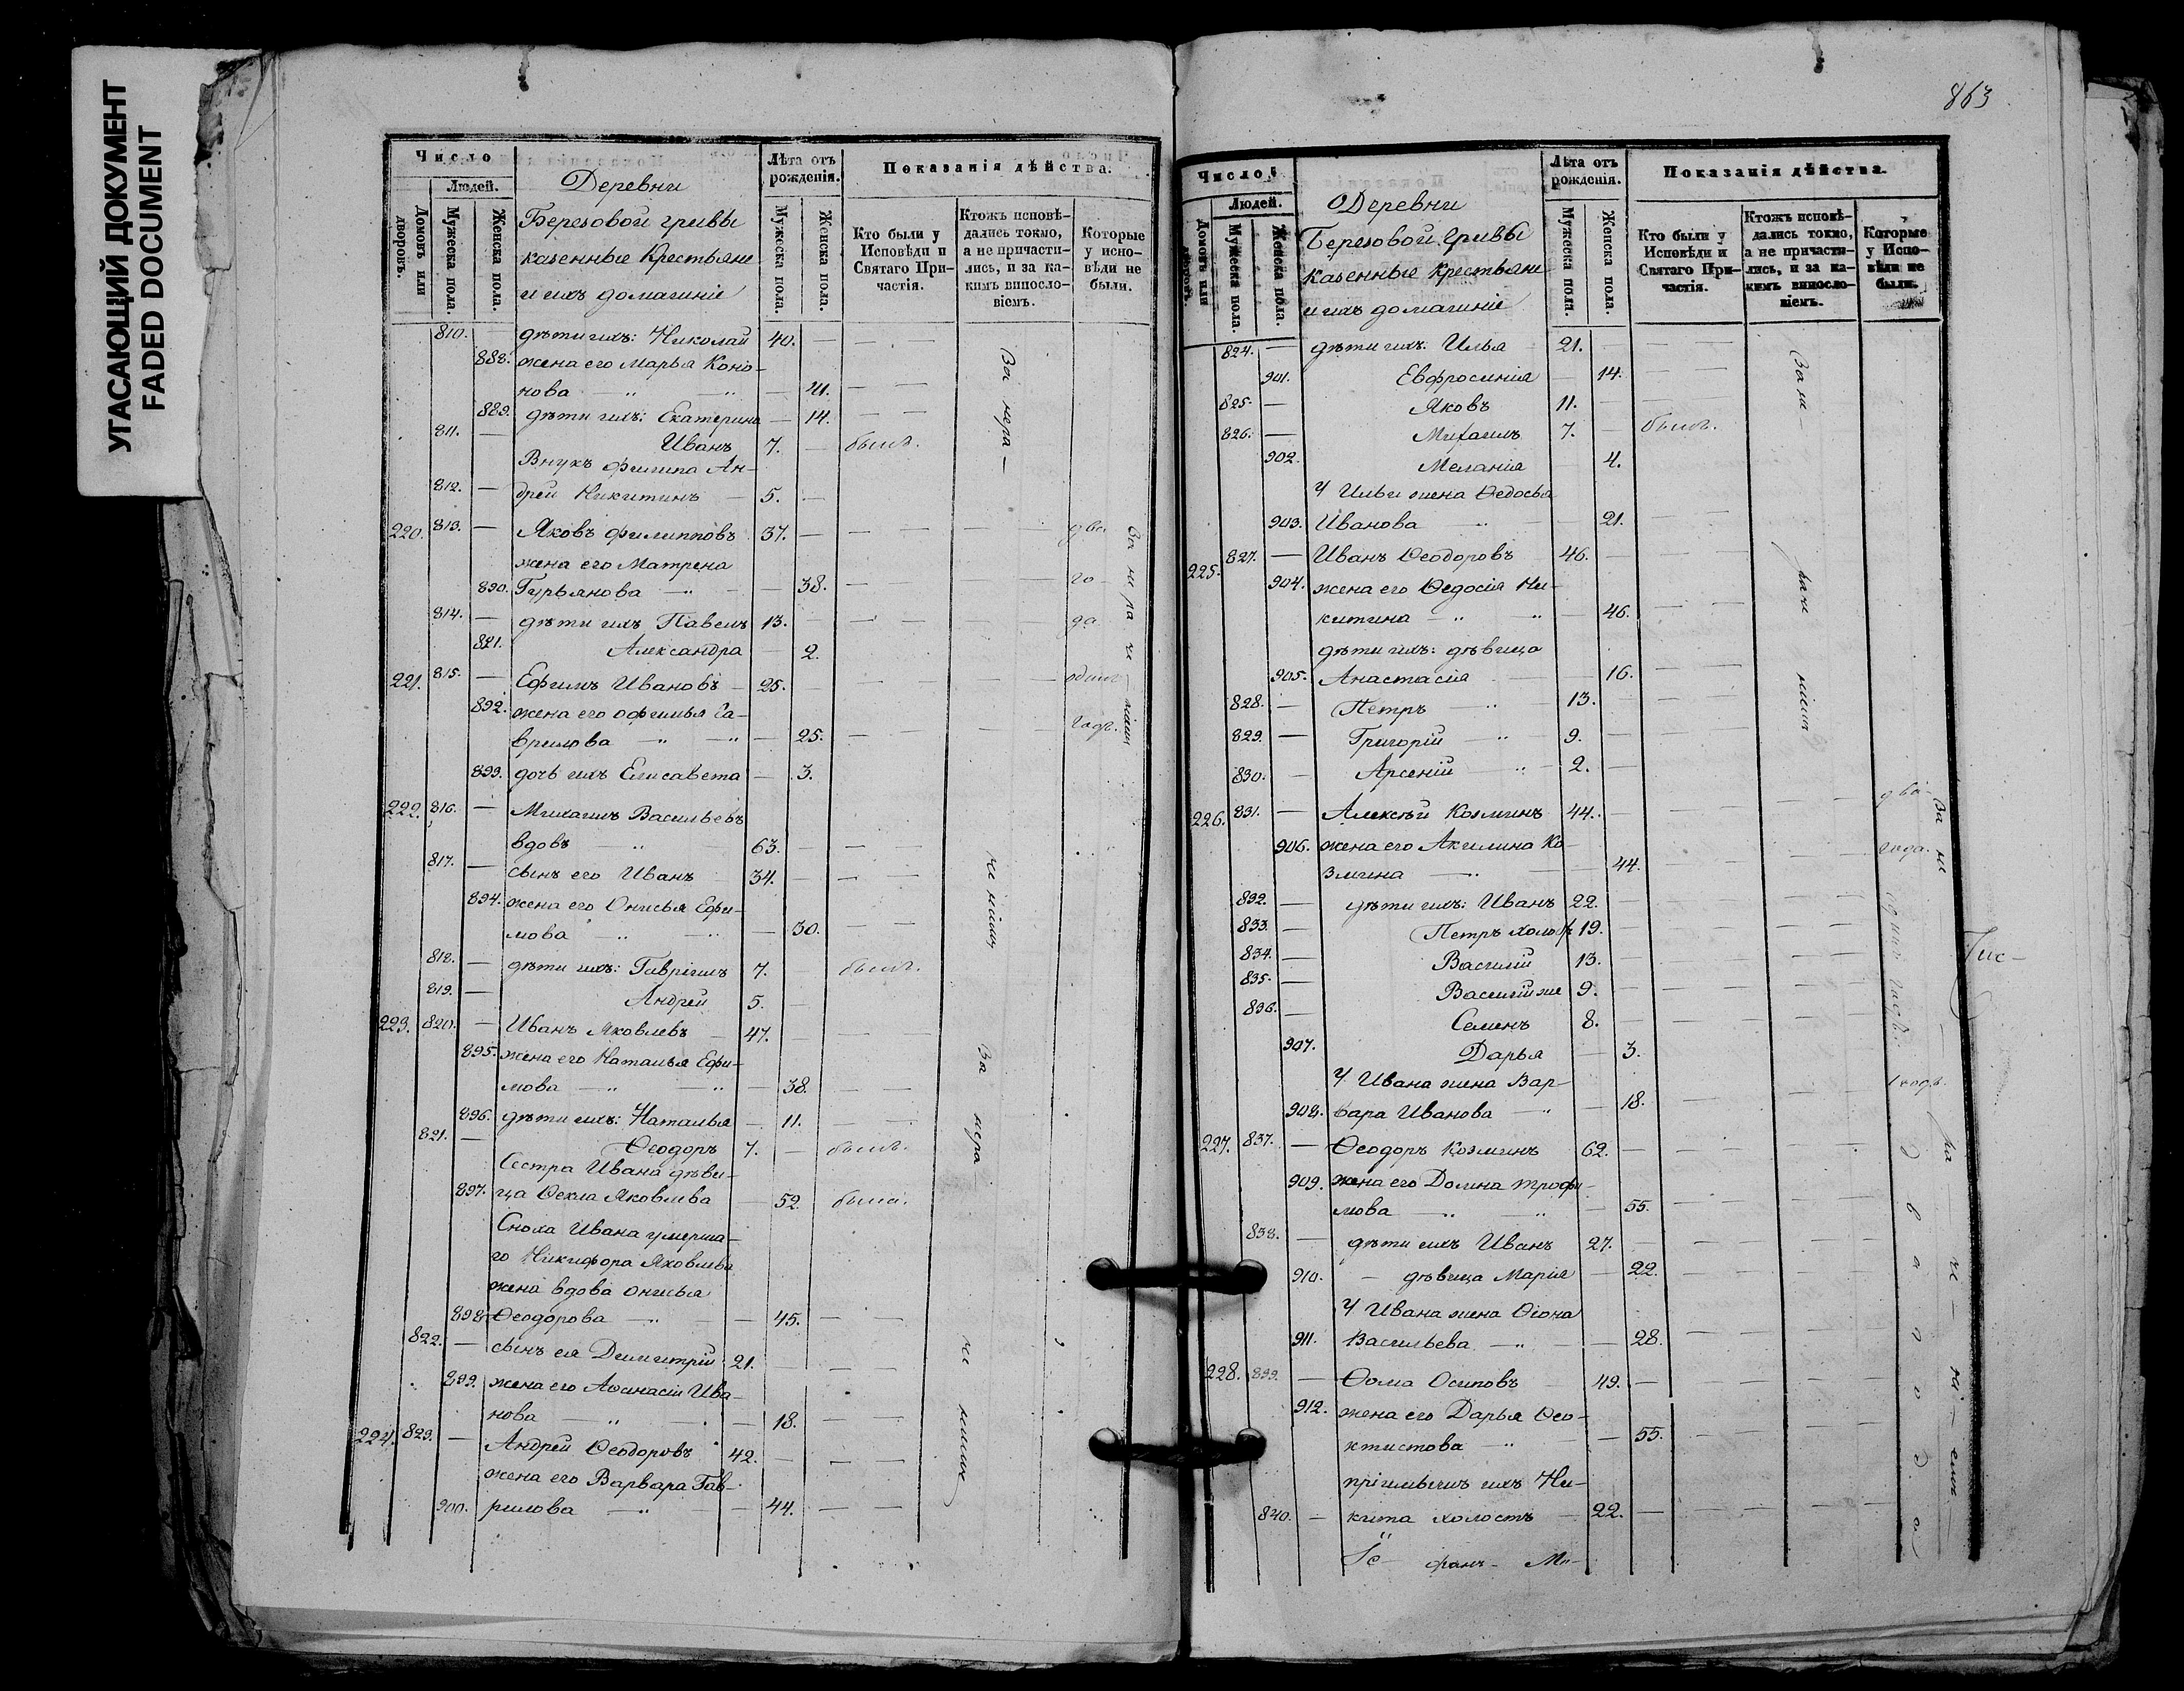 УГАСАЮЩИЙ ДОКУМЕНТ
FADED DOCUMENT
Число
Людей.
Домовъ или дворовъ.
Мужеска пола.
Женска пола.
Деревни
Березовой гривы
казенные Крестьяне
и ихъ домашніе
Лѣта отъ рожденія.
Мужеска пола.
Женска пола.
Показанія дѣйства.
Кто были у Исповѣди и Святаго Причастія.
Ктожъ исповѣдались токмо, а не причастились, и за какимъ винословіемъ.
Которые у исповѣди не были.
810. — дѣти ихъ: Николай 40. —
888. жена его Марья Коно-
нова — 41.
889. дѣти ихъ: Екатерина — 14.
811. — Иванъ 7. — былъ.
Внукъ Филипа Ан-
812. — дрей Никитинъ — 5. —
220. 813. — Яковъ Филипповъ 37. — два
жена его Матрена
890. Гурьянова — 38. — го
814. — дѣти ихъ Павелъ 13. — да
891. Александра — 2.
221. 815. — Ефимъ Ивановъ — 25. — одинъ
892. жена его Офимья Га-
врилова — 25. — годъ.
893. дочь ихъ Елисавета — 3.
222. 816. — Михаилъ Васильевъ
вдовъ 63. —
817. — сынъ его Иванъ 34. —
894. жена его Онисья Ефи-
мова — 30. —
818. — дѣти ихъ: Гавріилъ 7. былъ.
819. — Андрей 5. —
223. 820. — Иванъ Яковлевъ — 47. —
895. жена его Наталья Ефи-
мова — 38. —
896. дѣти ихъ: Наталья — 11. —
821. — Ѳеодоръ 7. — былъ.
Сестра Ивана дѣви-
897. ца Ѳекла Яковлева — 52. была.
Сноха Ивана умерша-
го Никифора Яковлева
жена вдова Онисья
898. Ѳеодорова — 45. —
822. — сынъ ея Димитрій 21. —
899. жена его Аѳанасія Ива-
нова — 18. —
224. 823. — Андрей Ѳеодоровъ 42. —
жена его Варвара Гав-
900. рилова — 44. —
863
Число
Людей.
Домовъ или дворовъ.
Мужеска пола.
Женска пола.
Деревни
Березовой гривы
казенные крестьяне
и ихъ домашніе
Лѣта отъ рожденія.
Мужеска пола.
Женска пола.
Показанія дѣйства.
Кто были у Исповѣди и Святаго Причастія.
Ктожъ исповѣдались токмо, а не причастились, и за какимъ винословіемъ.
Которые у Исповѣди не были.
824. — дѣти ихъ: Илья 21. —
901. Евфросинія — 14. —
825. — Яковъ 11. —
826. — Михаилъ 7. — былъ.
902. Меланія 4.
У Ильи жена Ѳедосья
903. Иванова — 21. —
225. 827. — Иванъ Ѳеодоровъ 46. —
904. жена его Ѳедосія Ни-
китина — 46. —
дѣти ихъ: дѣвица
905. Анастасія — 16. —
828. — Петръ — 13. —
829. — Григорій 9. —
830. — Арсеній 2. —
226. 831. — Алексѣй Козминъ 44. — два
906. жена его Акилина Ко-
змина — 44. — года.
832. — дѣти ихъ: Иванъ 22. —
833. — Петръ холос 19. —
834. — Василій 13. —
835. — Василій же 9. —
836. — Семенъ 8. —
907. Дарья — 3.
У Ивана жена Вар-
908. вара Иванова — 18. — годъ.
227. 837. — Ѳеодоръ Козминъ 62. —
909. жена его Домна Трофи-
мова — 55. —
838. — дѣти ихъ Иванъ 27. —
910. — дѣвица Марія — 22. —
У Ивана жена Ѳіона
911. Васильева — 28. —
228. 839. — Ѳома Осиповъ 49. —
912. жена его Дарья Ѳео-
ктистова — 55. —
пріимышъ ихъ Ни-
840. — кита холостъ — 22. —